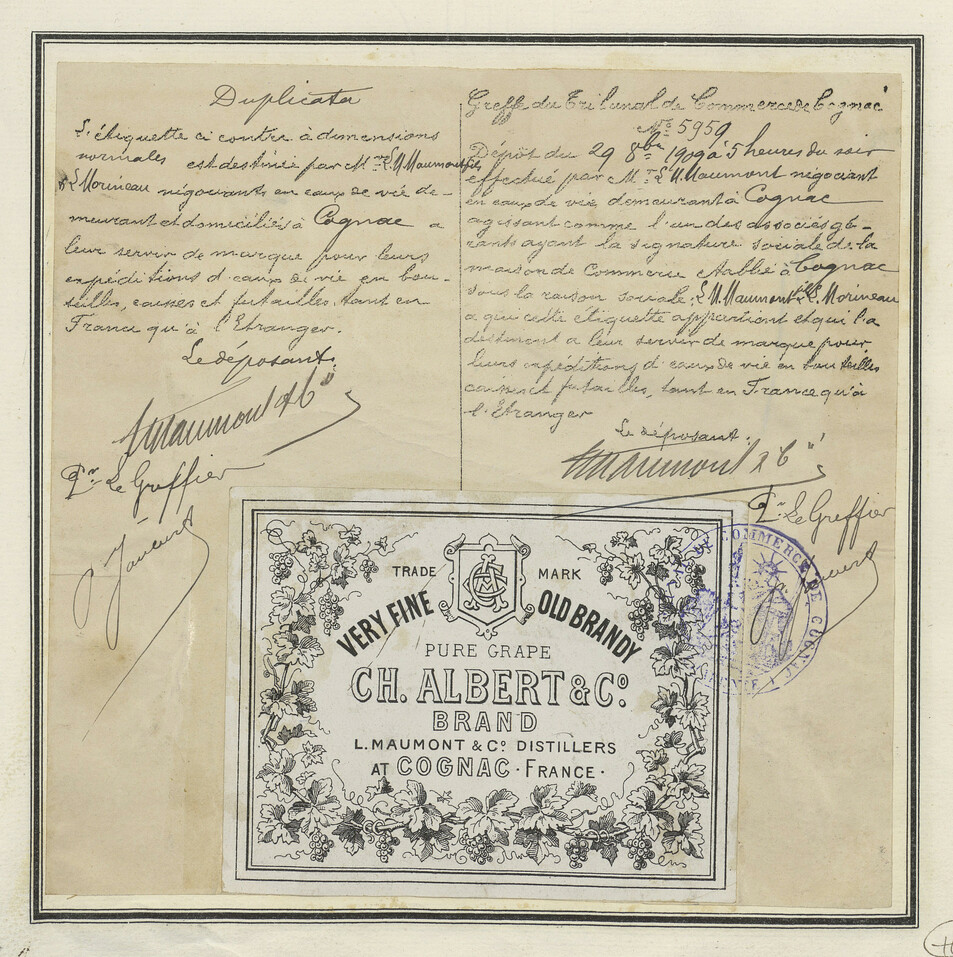 Duplicata
L'étiquette ci contre à dimensions
normales est destinée par M.rs L. U. Maumont fils
& L. Morineau négociants en eaux de vie de-
meurant et domiciliés à Cognac a
leur servir de marque pour leurs
expéditions d'eaux de vie en bou-
teilles, caisses et futailles, tant en
France qu'à l'Etranger.
Le déposant.
LU Maumont & Co
Pr. Le Greffier
Greffe du Tribunal de Commerce de Cognac
No 5959
Dépôt du 29 8bre 1909 à 5 heures du soir
effectué par Mr L. U. Maumont négociant
en eaux de vie, demeurant à Cognac
agissant comme l'un des associés gé-
rants ayant la signature sociale de la
maison de Commerce établie à Cognac
sous la raison sociale: L. U. Maumont fils & L. Morineau
a qui cette étiquette appartient et qui l'a
destinent a leur servir de marque pour
leurs expéditions d'eaux de vie en bouteilles
caisses et futailles, tant en France qu'à
l'Etranger
Le déposant.
LU Maumont & Co
Pr. Le Greffier
TRADE MARK
VERY FINE OLD BRANDY
PURE GRAPE
CH. ALBERT & Co.
BRAND
L. MAUMONT & Co. DISTILLERS
AT COGNAC · FRANCE ·
DE COMMERCE DE COGNAC